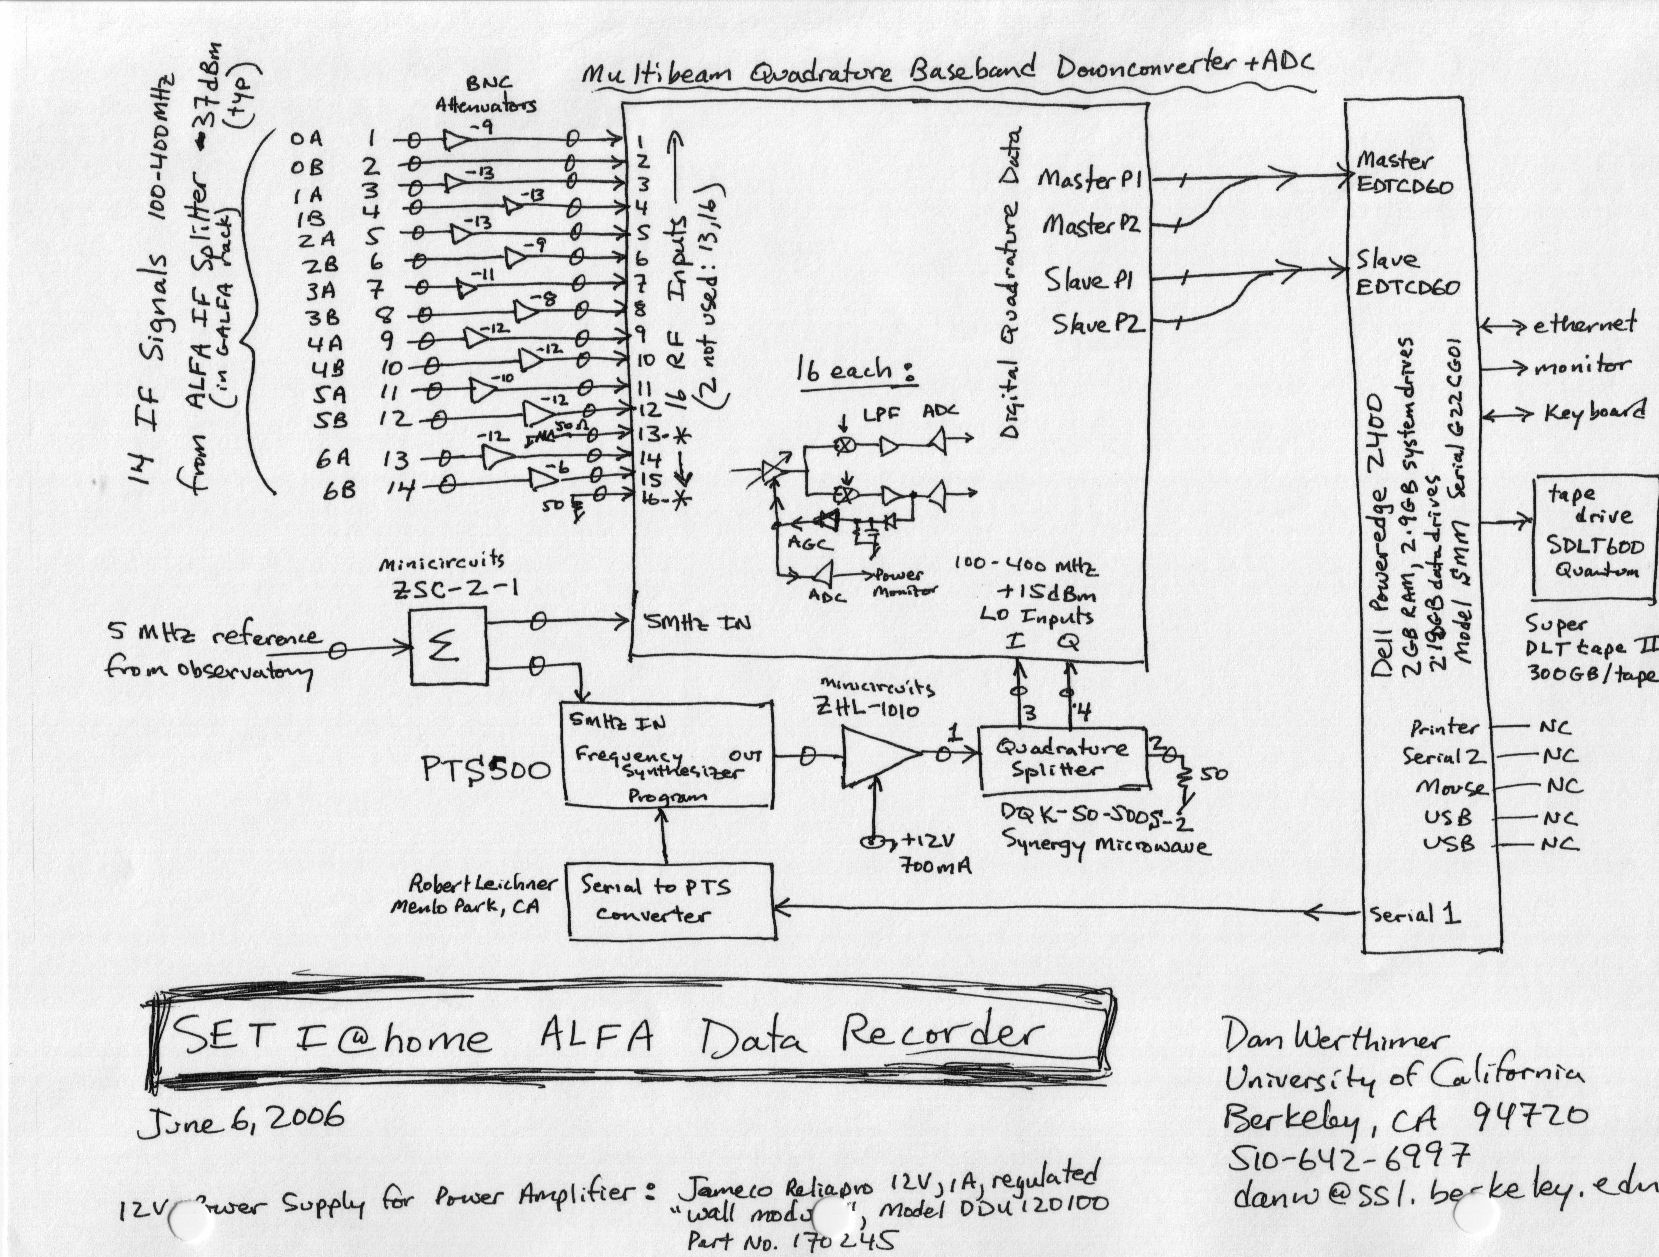 Multibeam Quadrature Baseband Downconverter + ADC
14 IF Signals 100-400MHz
from ALFA IF Splitter -37dBm
(in GALFA rack) (typ)
BNC
Attenuators
0A 1 -9 1
0B 2 2
1A 3 -13 3
1B 4 -13 4
2A 5 -13 5
2B 6 -9 6
3A 7 -11 7
3B 8 -8 8
4A 9 -12 9
4B 10 -12 10
5A 11 -10 11
5B 12 -12 12
50Ω 13-*
6A 13 -12 14
6B 14 -6 15
50 16-*
16 RF Inputs
(2 not used: 13,16)
Digital Quadrature Data
Master P1
Master P2
Slave P1
Slave P2
16 each:
LPF ADC
AGC
ADC
Power
Monitor
100-400 MHz
+15dBm
LO Inputs
I Q
5MHz IN
Master
EDTCD60
Slave
EDTCD60
Dell Poweredge 2400
2GB RAM, 2.9GB system drives
2.18GB data drives
Model MM Serial G22CG01
ethernet
monitor
Keyboard
tape
drive
SDLT600
Quantum
Super
DLT tape II
300GB/tape
Printer NC
Serial 2 NC
Mouse NC
USB NC
USB NC
Serial 1
Minicircuits
ZSC-2-1
5 MHz reference
from observatory
Σ
PTS500
5MHz IN
Frequency OUT
Synthesizer
Program
Minicircuits
ZHL-1010
+12V
700mA
1
3 4
Quadrature 2
Splitter
50
DQK-50-500S-2
Synergy Microwave
Robert Leichner
Menlo Park, CA
Serial to PTS
converter
SETI@home ALFA Data Recorder
June 6, 2006
Dan Werthimer
University of California
Berkeley, CA 94720
510-642-6997
danw@ssl.berkeley.edu
12V Power Supply for Power Amplifier: Jameco Reliapro 12V, 1A, regulated
"wall modu", Model DDU120100
Part No. 170245